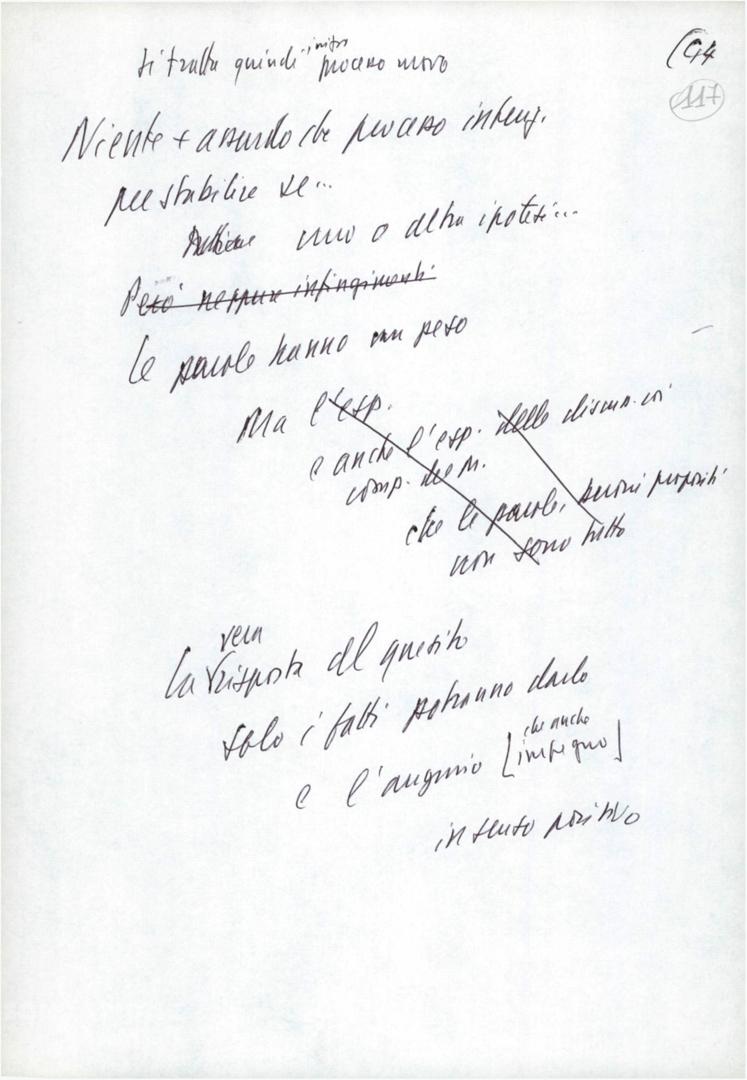 (94
117
inizio
si tratta quindi processo nuovo
Niente + assurdo che processo intenz.
per stabilire se...
uno o altra ipotesi...
Però neppure infingimenti
le parole hanno un peso
Ma l'esp.
e anche l'esp. delle discuss. coi
comp. dem.
che le parole, buoni propositi
non sono tutto
vera
La risposta al quesito
solo i fatti potranno darlo
che anche
e l'augurio [impegno]
in senso positivo